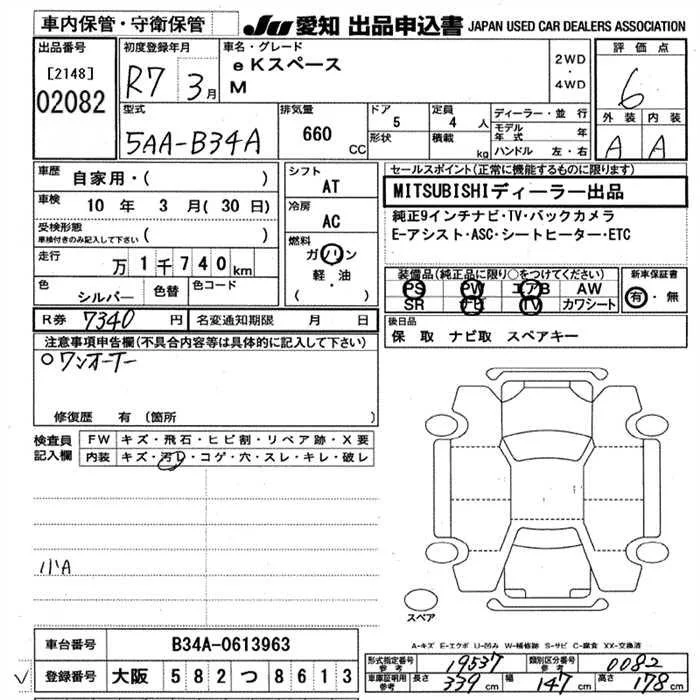 車内保管・守衛保管
JU 愛知 出品申込書 JAPAN USED CAR DEALERS ASSOCIATION
出品番号
[2148]
02082
初度登録年月
R7 3月
車名・グレード
eKスペース
M
2WD
・
4WD
評価点
6
外装 内装
A A
型式
5AA-B34A
排気量
660 CC
ドア 5
形状
定員 4 人
積載 kg
ディーラー・並行
モデル年式 年
ハンドル 左・右
車歴 自家用・( )
車検 10年 3月(30日)
受検形態
車検付きのみ記入して下さい ( )
走行 万1千740km
色 シルバー 色替 色コード
R券 7340 円 名変通知期限 月 日
シフト
AT
冷房
AC
燃料
ガソリン
軽・油
( )
セールスポイント(正常に機能するものに限ります)
MITSUBISHIディーラー出品
純正9インチナビ・TV・バックカメラ
E-アシスト・ASC・シートヒーター・ETC
装備品(純正品に限り○をつけてください)
PS PW エアB AW
SR ナビ TV カワシート
新車保証書
有・無
後日品
保 取 ナビ取 スペアキー
注意事項申告欄(不具合内容等は具体的に記入して下さい)
○ワンオーナー
修復歴 有(箇所 )
検査員記入欄
FW キズ・飛石・ヒビ割・リペア跡・X要
内装 キズ・汚レ・コゲ・穴・スレ・キレ・破レ
小A
スペア
A-キズ E-エクボ U-凹み W-補修跡 S-サビ C-腐食 XX-交換済
車台番号 B34A-0613963
登録番号 大阪 582 つ 8613
形式指定番号 参考 19537 類別区分番号 参考 0082
車庫証明用 参考 長さ 339 cm 幅 147 cm 高さ 178 cm